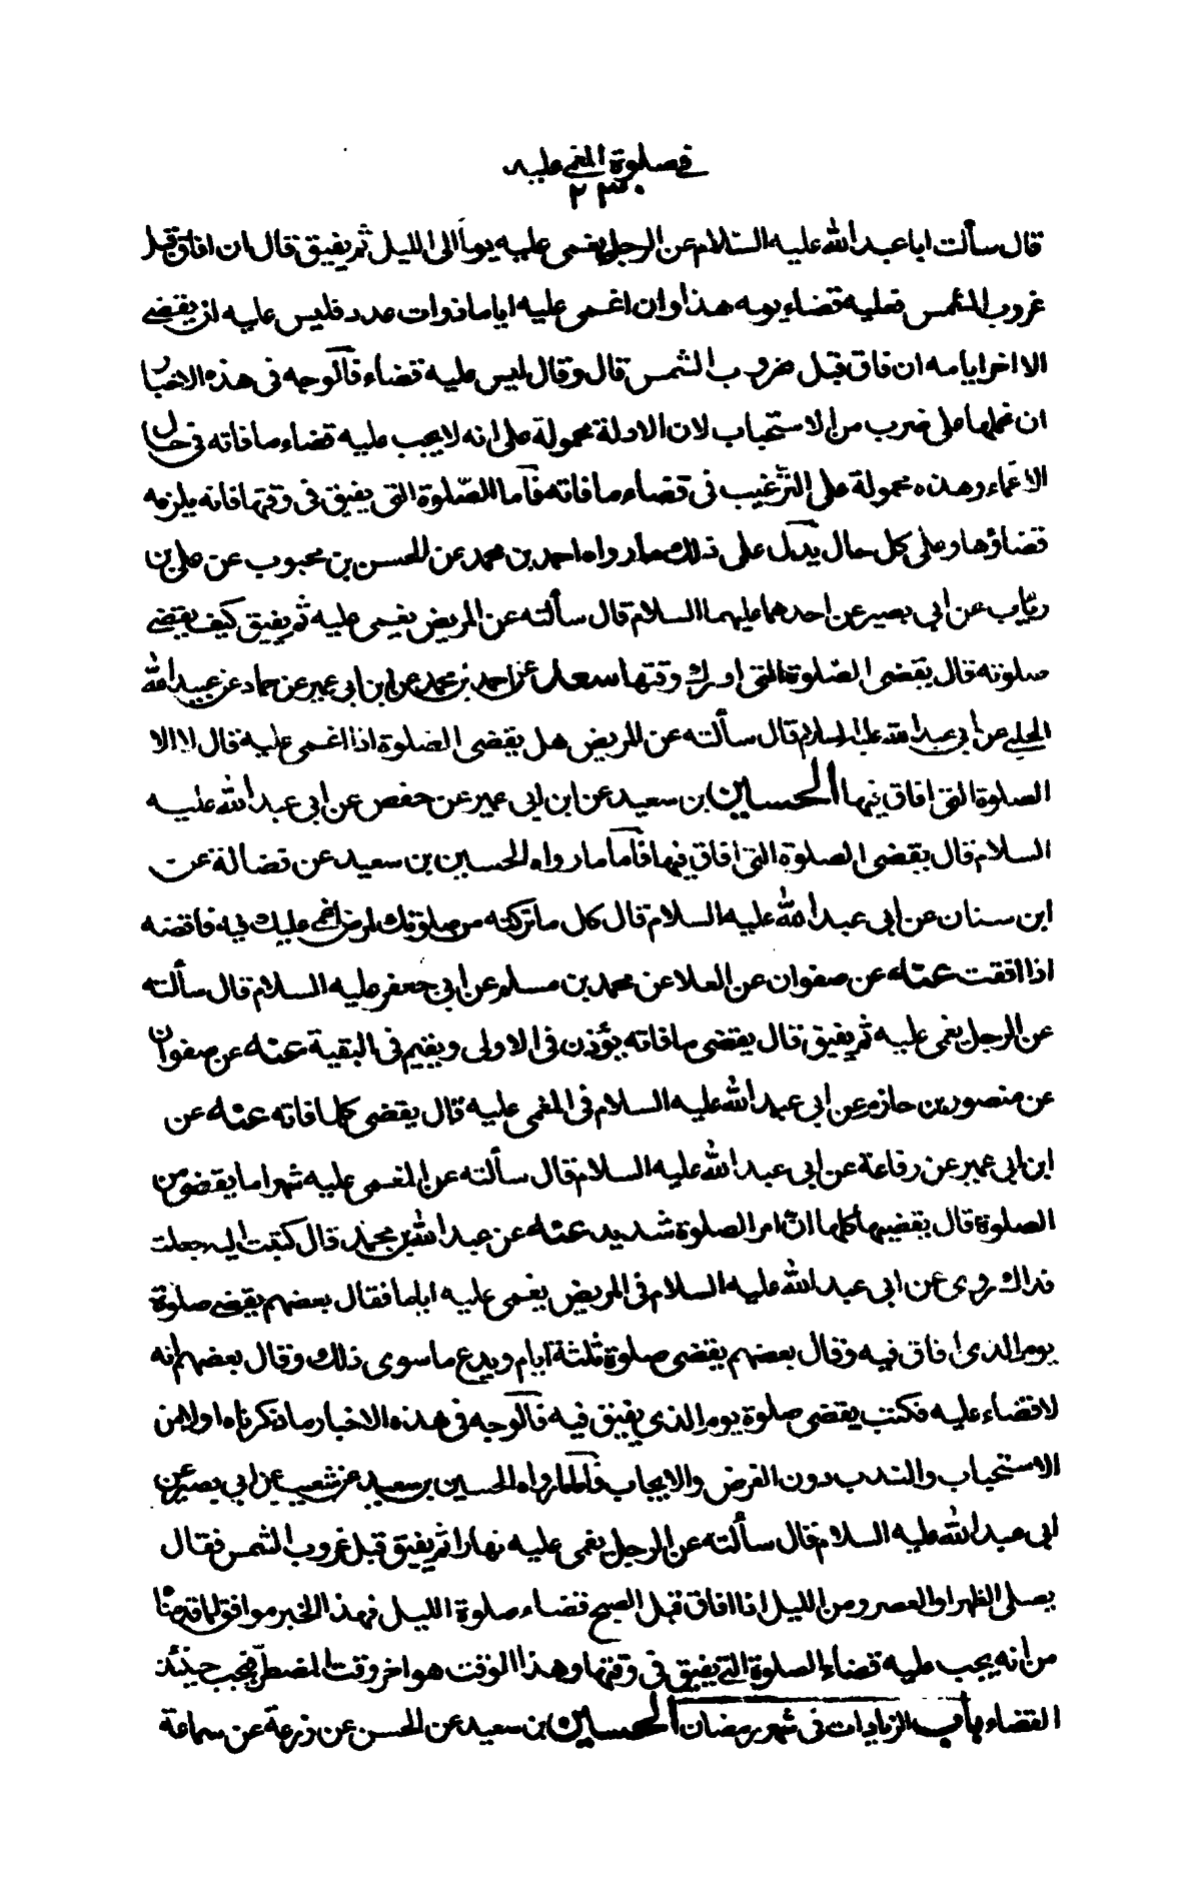 في صلوة المغمى عليه
٢٣٠
قال سألت ابا عبد الله عليه السلام عن الرجل يغمى عليه يوما الى الليل ثم يفيق قال ان افاق قبل
غروب الشمس فعليه قضاء يومه هذا وان اغمى عليه اياما ذوات عدد فليس عليه ان يقضى
الا اخر ايامه ان فاق قبل غروب الشمس قال وقال ليس عليه قضاء فالوجه فى هذه الاخبار
ان نحملها على ضرب من الاستحباب لان الادلة محمولة على انه لا يجب عليه قضاء ما فاته فى حال
الاغماء وهذه محمولة على الترغيب فى قضاء ما فاته فاما الصلوة التى يفيق فى وقتها فانه يلزمه
قضاؤها وعلى كل حال يدل على ذلك ما رواه احمد بن محمد عن الحسن بن محبوب عن على بن
رياب عن ابى بصير عن احدهما عليهما السلام قال سألته عن المريض يغمى عليه ثم يفيق كيف يقضى
صلوته قال يقضى الصلوة التى ادرك وقتها سعد عن احمد بن محمد عن ابن ابى عمير عن حماد عن عبيد الله
الحلبى عن ابى عبد الله عليه السلام قال سألته عن المريض هل يقضى الصلوة اذا اغمى عليه قال لا الا
الصلوة التى افاق فيها الحسين بن سعيد عن ابن ابى عمير عن حفص عن ابى عبد الله عليه
السلام قال يقضى الصلوة التى افاق فيها فاما ما رواه الحسين بن سعيد عن فضالة عن
ابن سنان عن ابى عبد الله عليه السلام قال كل ما تركته من صلوتك لمرض اغمى عليك فيه فاقضه
اذا افقت عنه عن صفوان عن العلا عن محمد بن مسلم عن ابى جعفر عليه السلام قال سألته
عن الرجل يغمى عليه ثم يفيق قال يقضى ما فاته يؤذن فى الاولى ويقيم فى البقية عنه عن صفوان
عن منصور بن حازم عن ابى عبد الله عليه السلام فى المغمى عليه قال يقضى كلما فاته عنه عن
ابن ابى عمير عن رفاعة عن ابى عبد الله عليه السلام قال سألته عن المغمى عليه شهرا ما يقضى من
الصلوة قال يقضيها كلها ان امر الصلوة شديد عنه عن عبد الله بن محمد قال كتبت اليه جعلت
فداك روى عن ابى عبد الله عليه السلام فى المريض يغمى عليه اياما فقال بعضهم يقضى صلوة
يوم الذى افاق فيه وقال بعضهم يقضى صلوة ثلثة ايام ويدع ما سوى ذلك وقال بعضهم انه
لا قضاء عليه فكتب يقضى صلوة يوم الذى يفيق فيه فالوجه فى هذه الاخبار ما ذكرناه اولا من
الاستحباب والندب دون الفرض والايجاب فاما ما رواه الحسين بن سعيد عن شعيب عن ابى بصير عن
ابى عبد الله عليه السلام قال سألته عن الرجل يغمى عليه نهارا ثم يفيق قبل غروب الشمس فقال
يصلى الظهر والعصر ومن الليل اذا افاق قبل الصبح قضاء صلوة الليل فهذا الخبر موافق لما قدمنا
من انه يجب عليه قضاء الصلوة التى يفيق فى وقتها وهذا الوقت هو اخر وقت المضطر فيجب حينئذ
القضاء باب الزيادات فى شهر رمضان الحسين بن سعيد عن الحسن عن زرعة عن سماعة